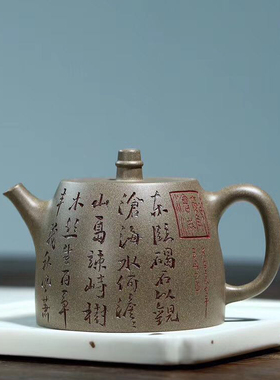 東臨碣石以觀
滄海水何澹澹
山島竦峙樹
木叢生百草
豐茂秋風蕭